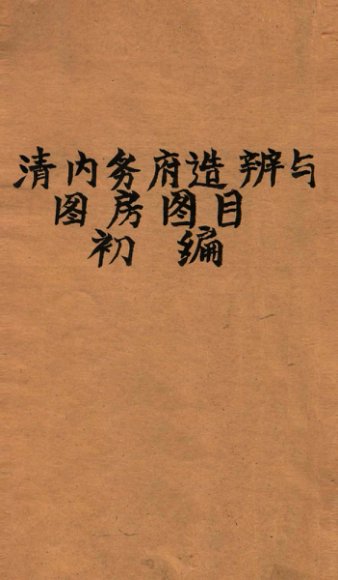 清内务府造辨与
图房图目
初编